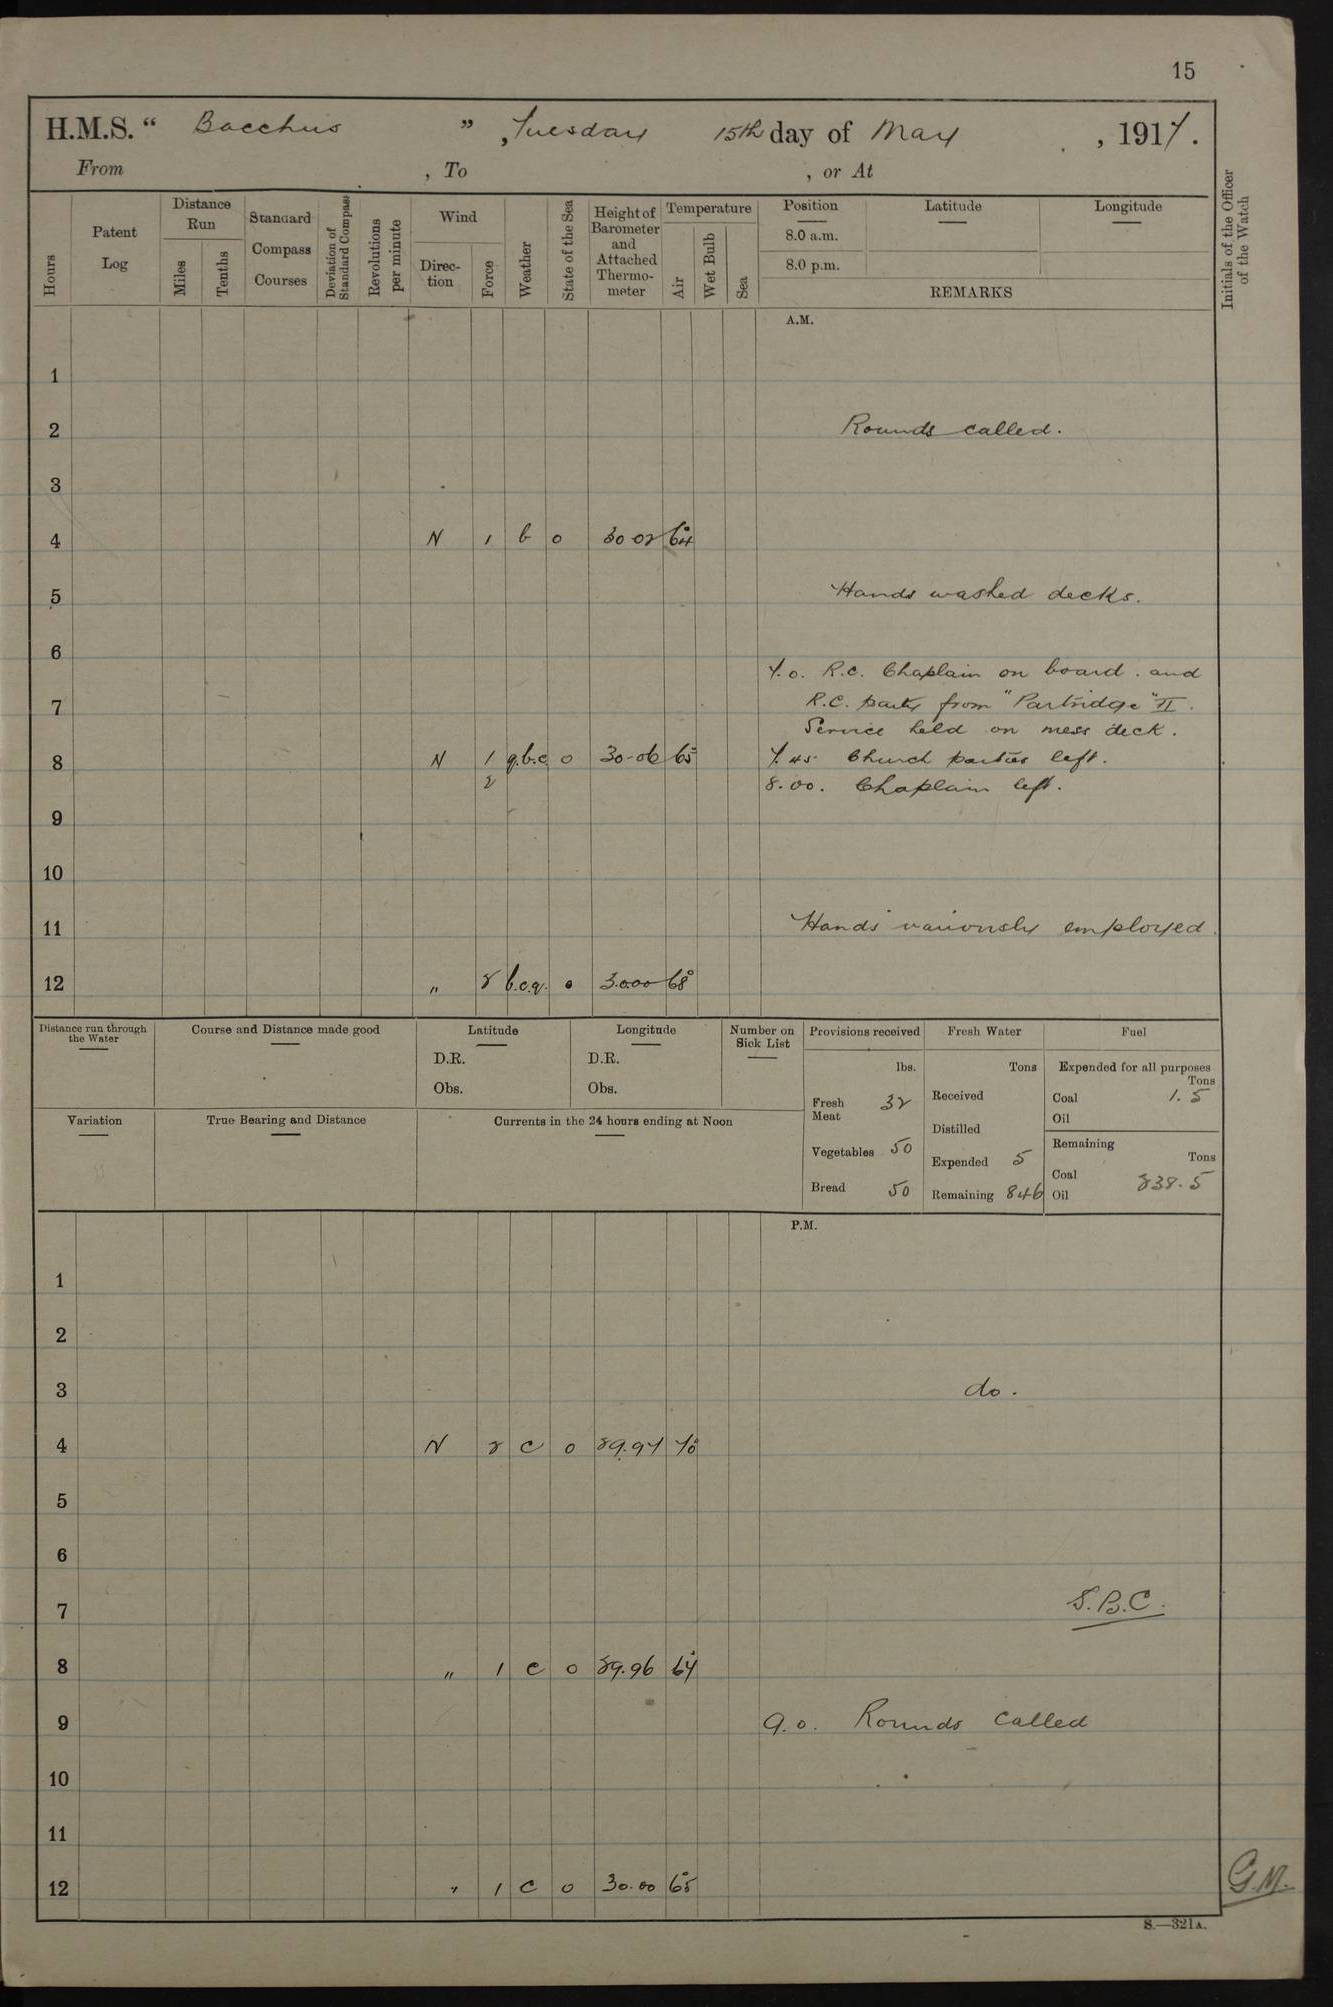 15
H.M.S. “ Bacchus ” , Tuesday 15th day of May , 1917.
From , To , or At
Hours
Patent Log
Distance Run
Miles
Tenths
Standard Compass Courses
Deviation of Standard Compass
Revolutions per minute
Wind
Direc-tion
Force
Weather
State of the Sea
Height of Barometer and Attached Thermo-meter
Temperature
Air
Wet Bulb
Sea
Position
8.0 a.m.
8.0 p.m.
Latitude
Longitude
REMARKS
Initials of the Officer of the Watch
A.M.
1
2 Rounds called.
3
4 N 1 b 0 30.02 64°
5 Hands washed decks.
6
7.0. R.C. Chaplain on board. and
7 R.C. party from "Partridge" II.
Service held on mess deck.
8 N 1 q.b.c. 0 30.06 65° 7.45 Church parties left.
2 8.00. Chaplain left.
9
10
11 Hands variously employed.
12 " 2 b.c.q. 0 30.00 68°
Distance run through the Water
Course and Distance made good
Latitude
D.R.
Obs.
Longitude
D.R.
Obs.
Number on Sick List
Provisions received
lbs.
Fresh Meat 32
Vegetables 50
Bread 50
Fresh Water
Tons
Received
Distilled
Expended 5
Remaining 846
Fuel
Expended for all purposes
Tons
Coal 1.5
Oil
Remaining
Tons
Coal 838.5
Oil
Variation
True Bearing and Distance
Currents in the 24 hours ending at Noon
P.M.
1
2
3 do.
4 N 2 c 0 29.97 70°
5
6
7 S.B.C.
8 " 1 c 0 29.96 67°
9 9.0. Rounds called
10
11
12 " 1 c 0 30.00 65°
G.M.
S.—321A.